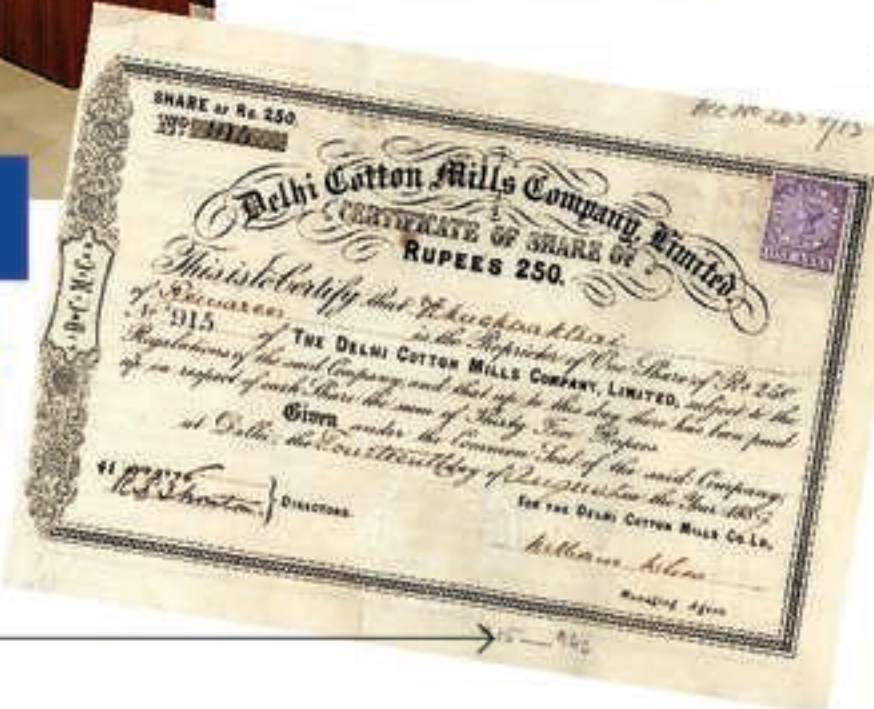 SHARE of Rs. 250.
No.
Delhi Cotton Mills Company, Limited.
CERTIFICATE OF SHARE OF
RUPEES 250.
ONE ANNA
This is to Certify that
of
is the Proprietor of One Share of Rs 250
No 915 of THE DELHI COTTON MILLS COMPANY, LIMITED, subject to the
Regulations of the said Company and that up to this day there has been paid
up in respect of each Share the sum of Thirty Five Rupees
Given under the Common Seal of the said Company
at Delhi, the Fourteenth day of August in the Year
DIRECTORS.
FOR THE DELHI COTTON MILLS CO. LD.
William
Managing Agent
D. C. M. C.